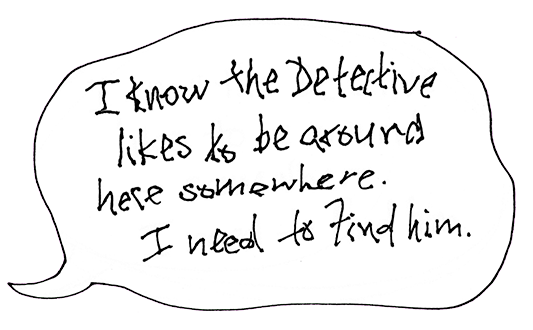 I know the Detective
likes to be around
here somewhere.
I need to find him.